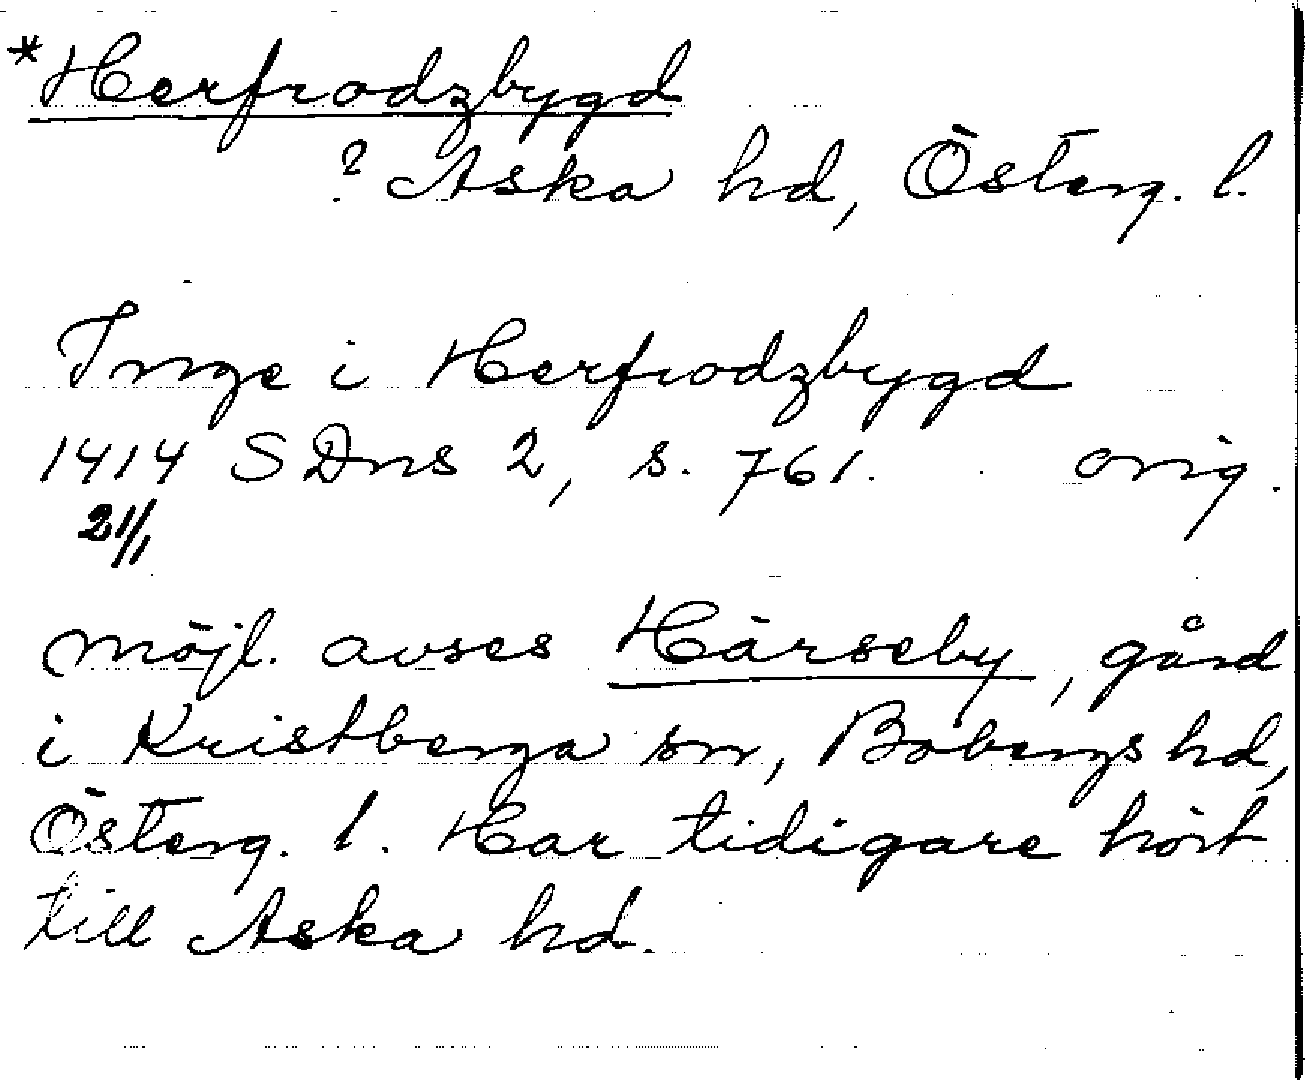 *Herfrodzbygd
? Aska hd, Österg. l.
Inge i Herfrodzbygd
1414 SDns 2, s. 761. orig.
21/1
möjl. avses Härseby, gård
i Kristberga sn, Bobergs hd,
Österg. l. Har tidigare hört
till Aska hd.